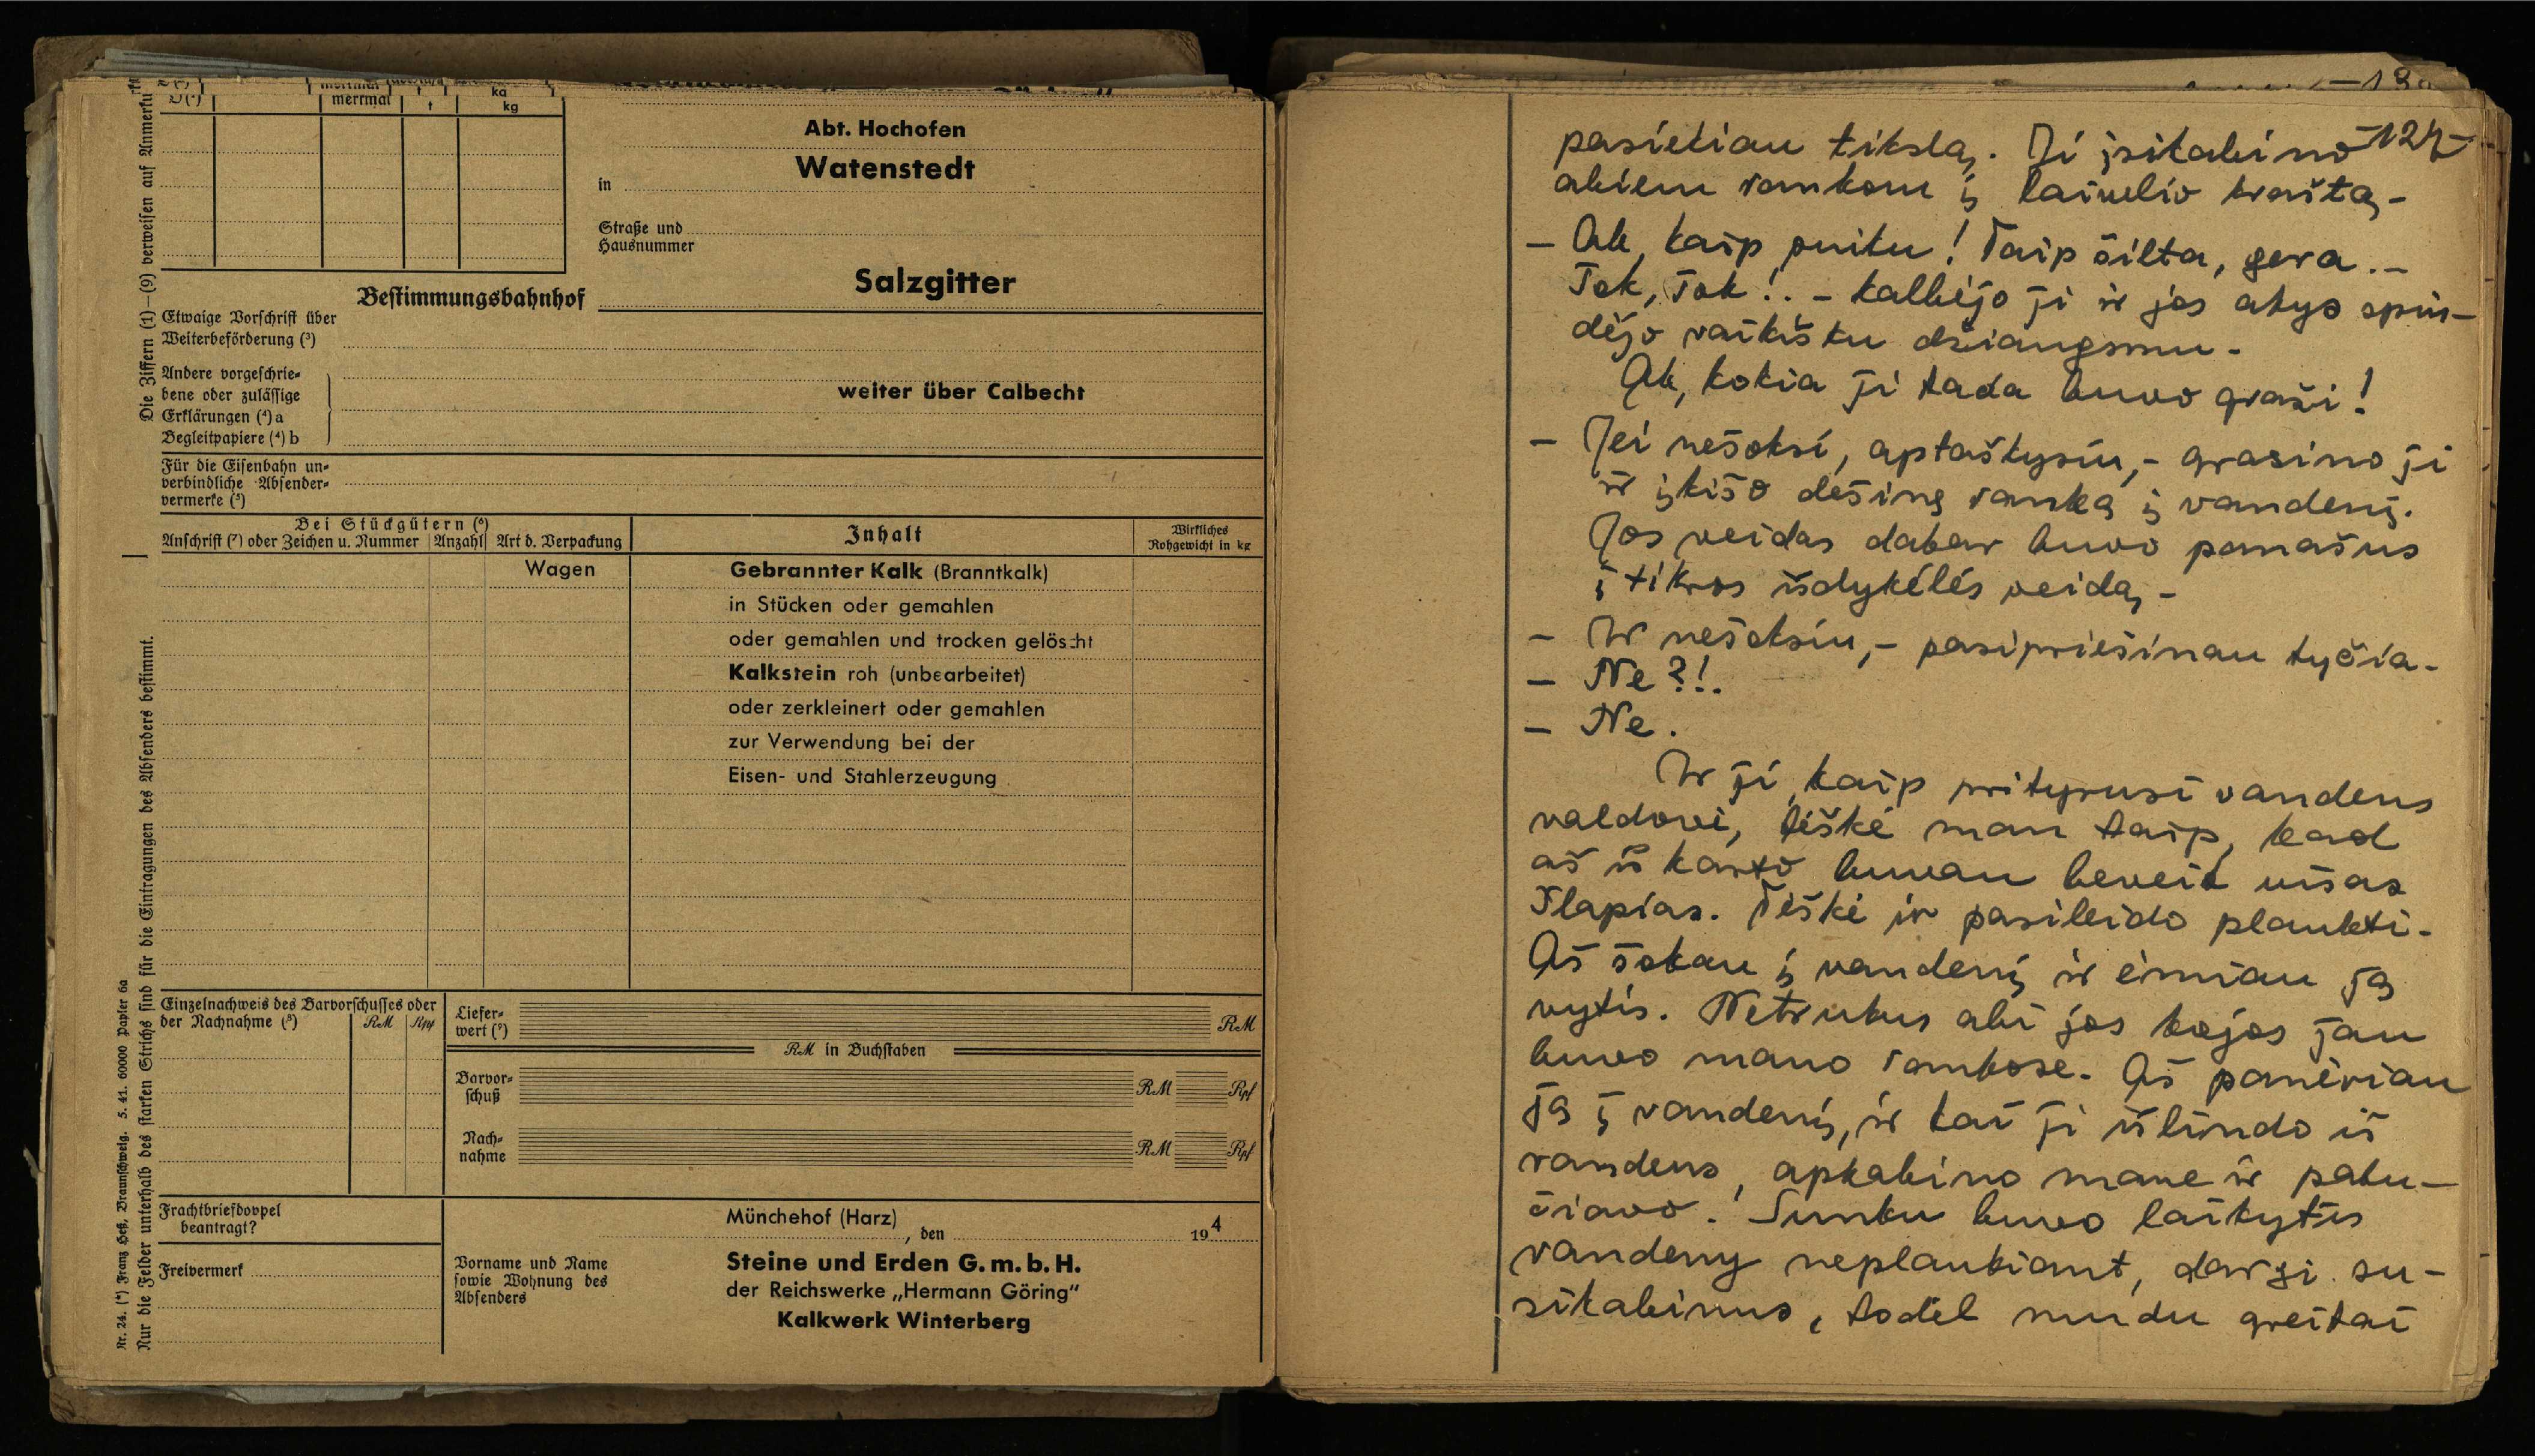 merrmal t kg
Abt. Hochofen
Watenstedt
in
Straße und
Hausnummer
Salzgitter
Bestimmungsbahnhof
Etwaige Vorschrift über
Weiterbeförderung (³)
Andere vorgeschrie-
bene oder zulässige
Erklärungen (⁴) a
Begleitpapiere (⁴) b
weiter über Calbecht
Für die Eisenbahn un-
verbindliche Absender-
vermerke (⁵)
Bei Stückgütern (⁶)
Anschrift (⁷) oder Zeichen u. Nummer Anzahl Art d. Verpackung
Inhalt
Wirkliches
Rohgewicht in kg
Wagen
Gebrannter Kalk (Branntkalk)
in Stücken oder gemahlen
oder gemahlen und trocken gelöscht
Kalkstein roh (unbearbeitet)
oder zerkleinert oder gemahlen
zur Verwendung bei der
Eisen- und Stahlerzeugung
Einzelnachweis des Barvorschusses oder
der Nachnahme (⁸) RM Rpf
Liefer-
wert (⁹) RM
RM in Buchstaben
Barvor-
schuß RM Rpf
Nach-
nahme RM Rpf
Frachtbriefdoppel
beantragt?
Freivermerk
Münchehof (Harz)
, den 194
Vorname und Name
sowie Wohnung des
Absenders
Steine und Erden G.m.b.H.
der Reichswerke „Hermann Göring"
Kalkwerk Winterberg
Die Ziffern (1)—(9) verweisen auf
Nur die Felder unterhalb des starken Strichs sind für die Eintragungen des Absenders bestimmt.
Nr. 24. (*) Franz Heß, Braunschweig. 5. 41. 60000 Papier 6a
-127-
pasiekiau tikslą. Ji įsikabino
abiem rankom į laivelio kraštą.
– Ak, kaip puiku! Taip šilta, gera.
Šok, šok!.. – kalbėjo ji ir jos akys spin-
dėjo vaikišku džiaugsmu.
Ak, kokia ji tada buvo graži!
– Jei nešoksi, aptaškysiu, – grasino ji
ir įkišo dešinę ranką į vandenį.
Jos veidas dabar buvo panašus
į tikros išdykėlės veidą.
– Ir nešoksiu, – pasipriešinau tyčia.
– Ne?!.
– Ne.
Ir ji, kaip prityrusi vandens
valdovė, tėškė man taip, kad
aš iš karto buvau beveik visas
šlapias. Tėškė ir pasileido plaukti.
Aš šokau į vandenį ir ėmiau ją
vytis. Netrukus abi jos kojos jau
buvo mano rankose. Aš panėriau
ją į vandenį, ir kai ji išlindo iš
vandens, apkabino mane ir pabu-
čiavo. Sunku buvo laikytis
vandeny neplaukiant, dargi su-
sikabinus, todėl mudu greitai